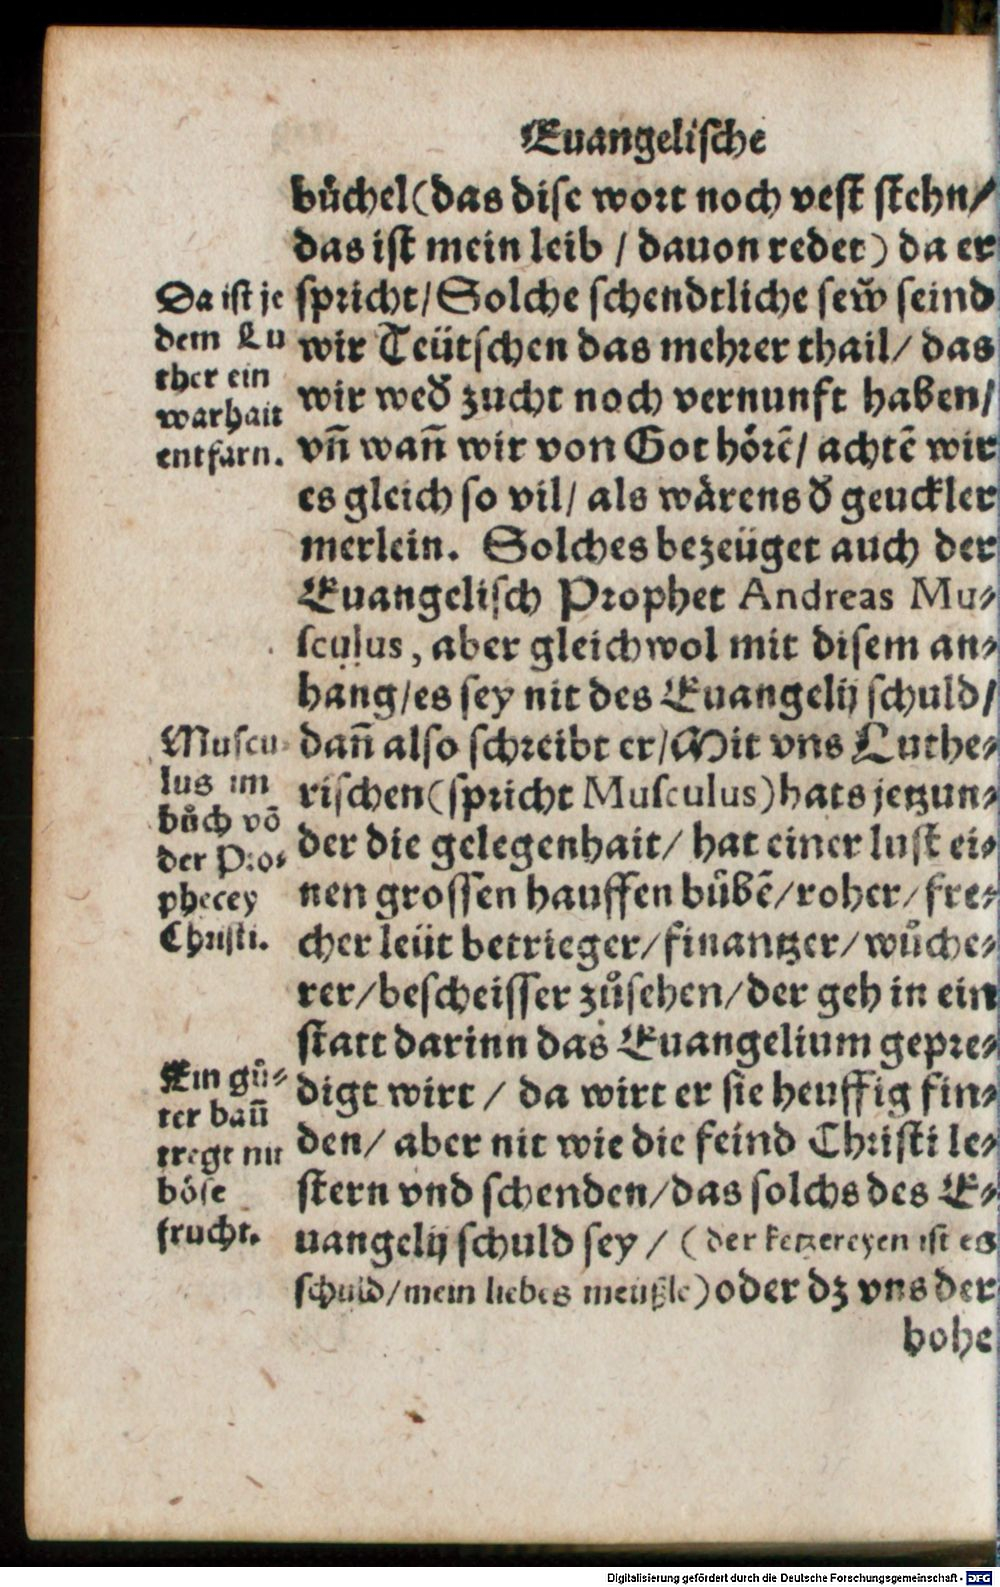 Euangelische
bůchel(das dise wort noch vest stehn/
das ist mein leib / dauon redet) da er
spricht/Solche schendtliche sew̃ seind
wir Teütschen das mehrer thail/ das
wir wed̃ zucht noch vernunft haben/
vñ wañ wir von Got hörẽ/ achtẽ wir
es gleich so vil/ als wärens d̃ geuckler
merlein. Solches bezeüget auch der
Euangelisch Prophet Andreas Mu-
sculus, aber gleichwol mit disem an-
hang/es sey nit des Euangelij schuld/
dañ also schreibt er/Mit vns Luthe-
rischen(spricht Musculus)hats jetzun-
der die gelegenhait/ hat einer lust ei-
nen grossen hauffen bůbẽ/roher/fre-
cher leüt betrieger/finantzer/wůche-
rer/bescheisser zůsehen/der geh in ein
statt darinn das Euangelium gepre-
digt wirt / da wirt er sie heuffig fin-
den/ aber nit wie die feind Christi le-
stern vnd schenden/das solchs des E-
uangelij schuld sey / (der ketzereyen ist es
schuld/mein liebes meüßle)oder dz vns der
hohe
Da ist je
dem Lu
ther ein
warhait
entfarn.
Muscu-
lus im
bůch võ
der Pro-
phecey
Christi.
Ein gů-
ter bañ
tregt nit
böse
frucht.
Digitalisierung gefördert durch die Deutsche Forschungsgemeinschaft - DFG